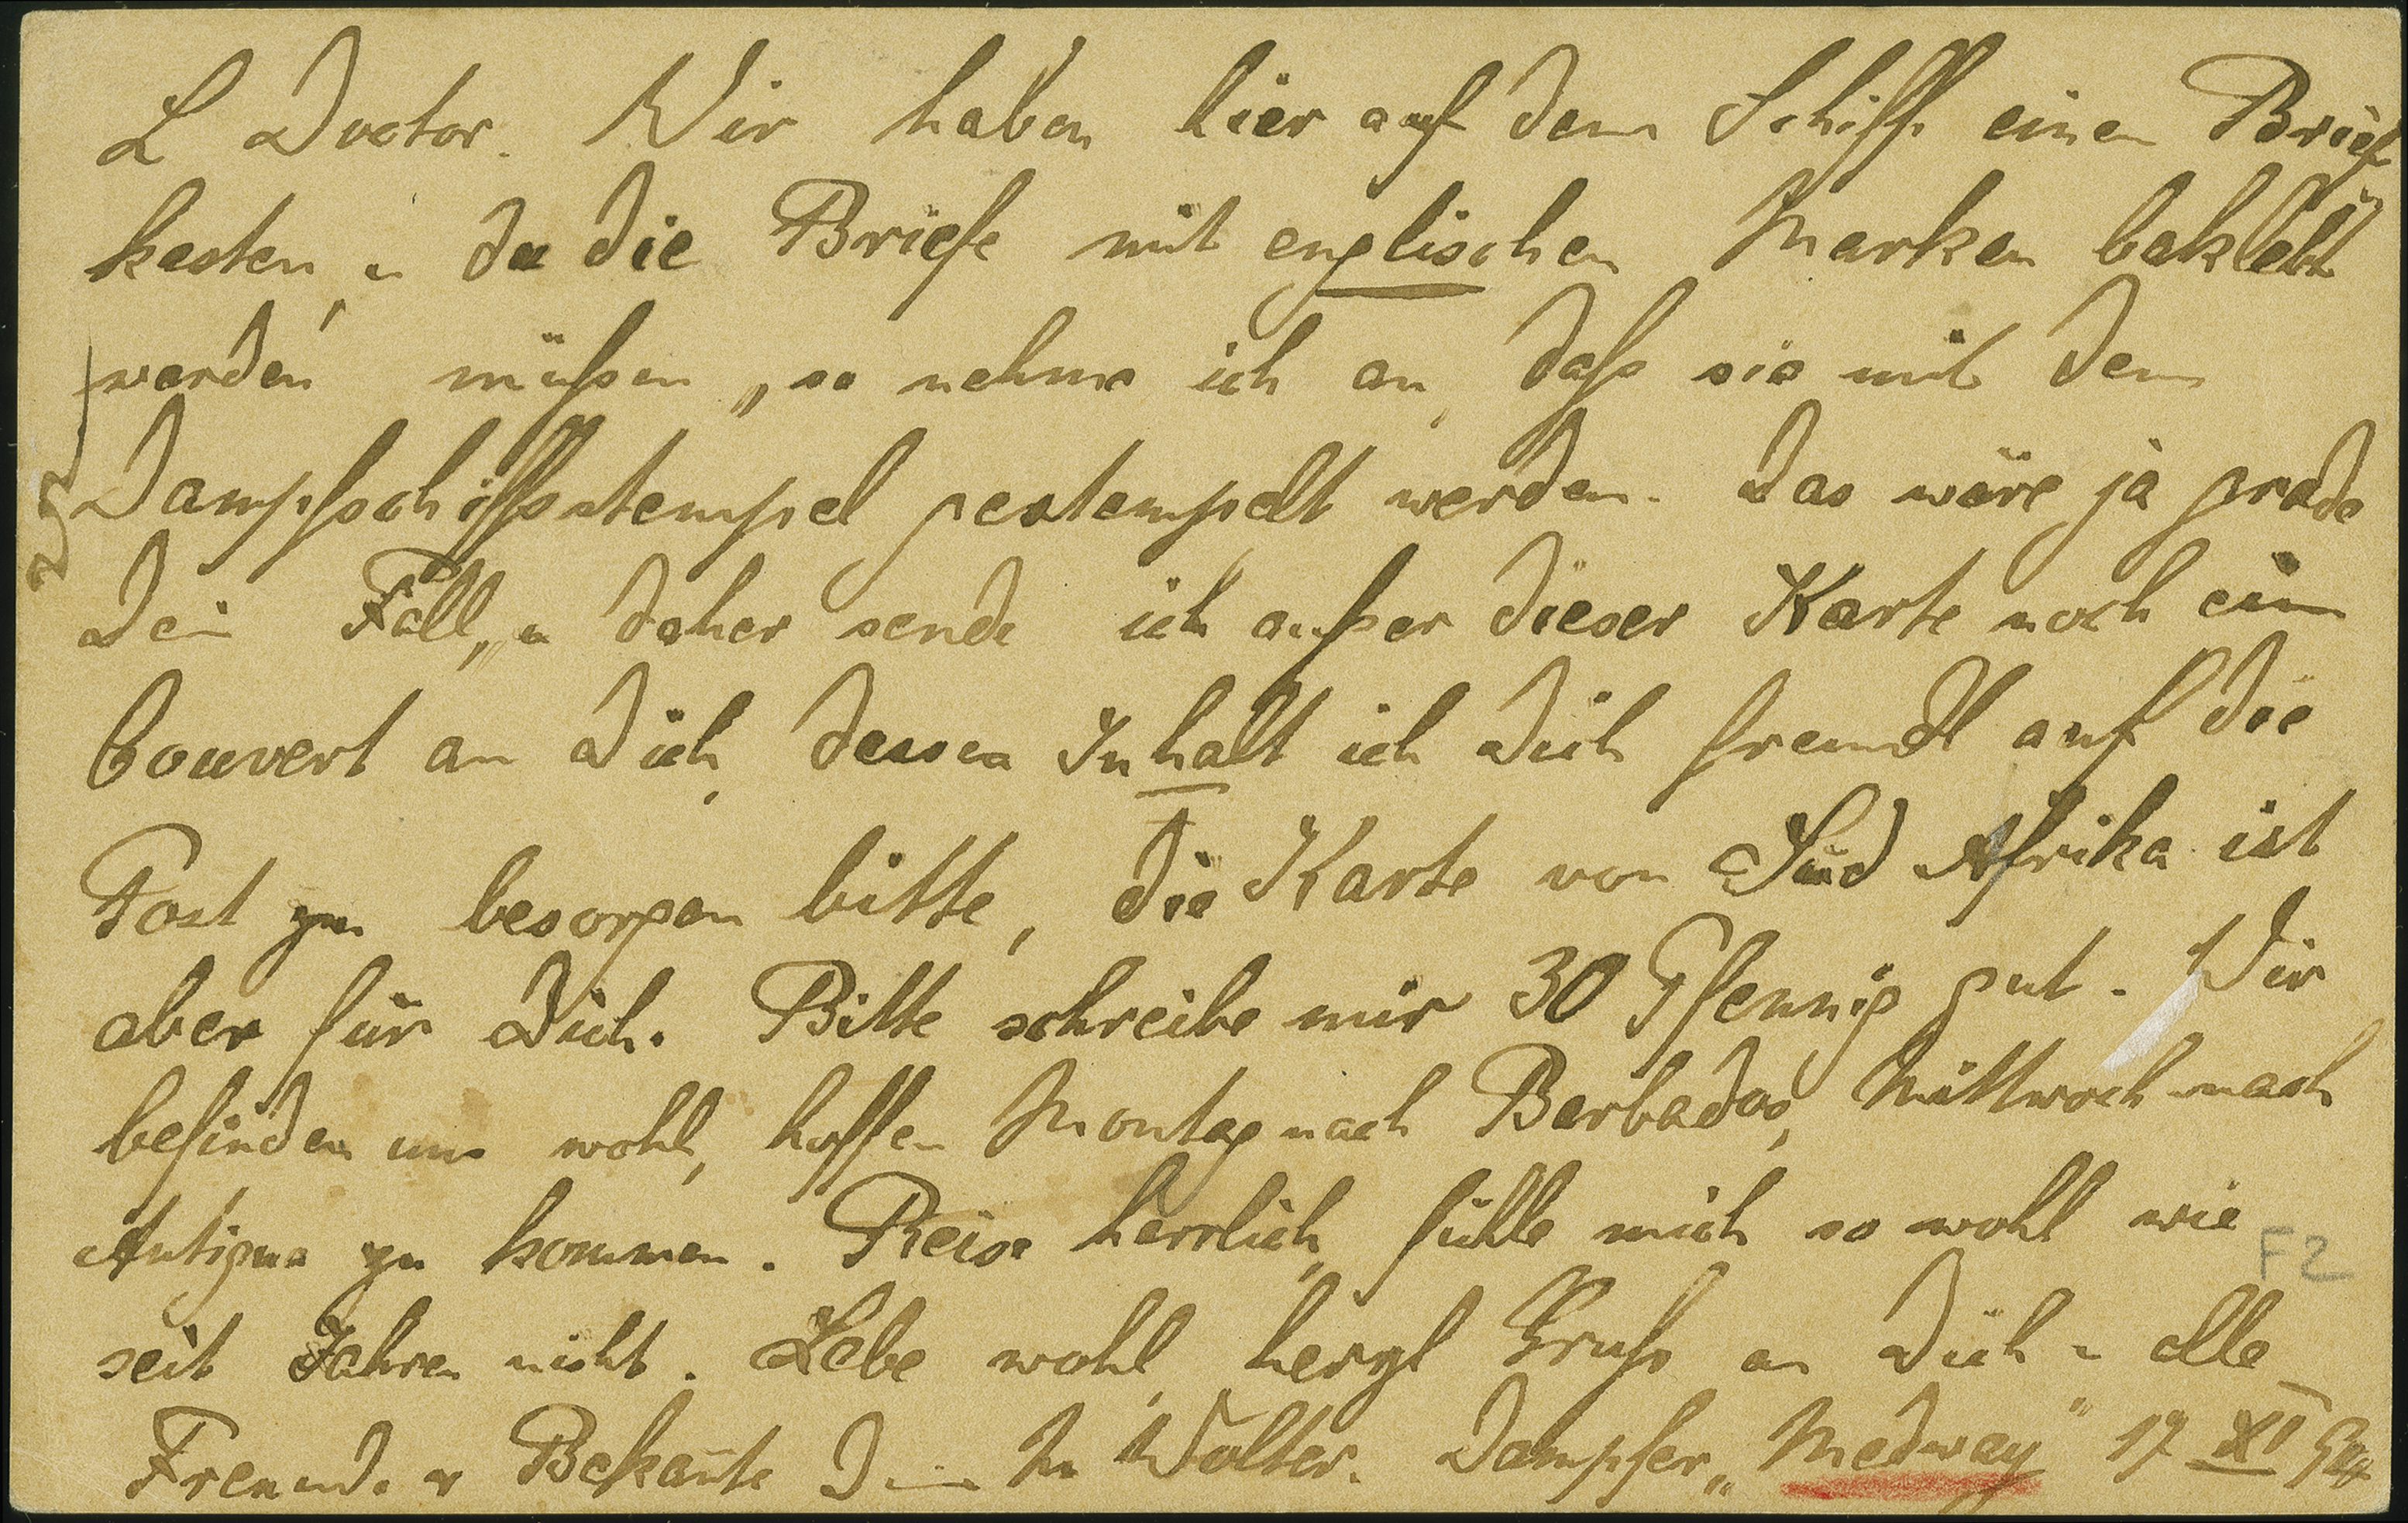 L Doctor. Wir haben hier auf dem Schiff einen Brief
kasten, u da die Briefe mit englischen Marken beklebt
werden müßen, so nehme ich an, daß sie mit dem
Dampfschiffsstempel gestempelt werden. Das wäre ja grade
Dein Fall, u daher sende ich außer dieser Karte noch ein
Couvert an Dich, dessen Inhalt ich Dich freundl auf die
Post zu besorgen bitte, die Karte von Süd Afrika ist
aber für Dich. Bitte schreibe mir 30 Pfennig gut. Wir
befinden uns wohl, hoffen Montag nach Barbados, Mittwoch nach
Antigua zu kommen. Reise herrlich, fühle mich so wohl wie
F2
seit Jahren nicht. Lebe wohl, herzl Gruß an Dich u alle
Freunde u Bekannte Dein Wolter. Dampfer „Medway" 17 XI